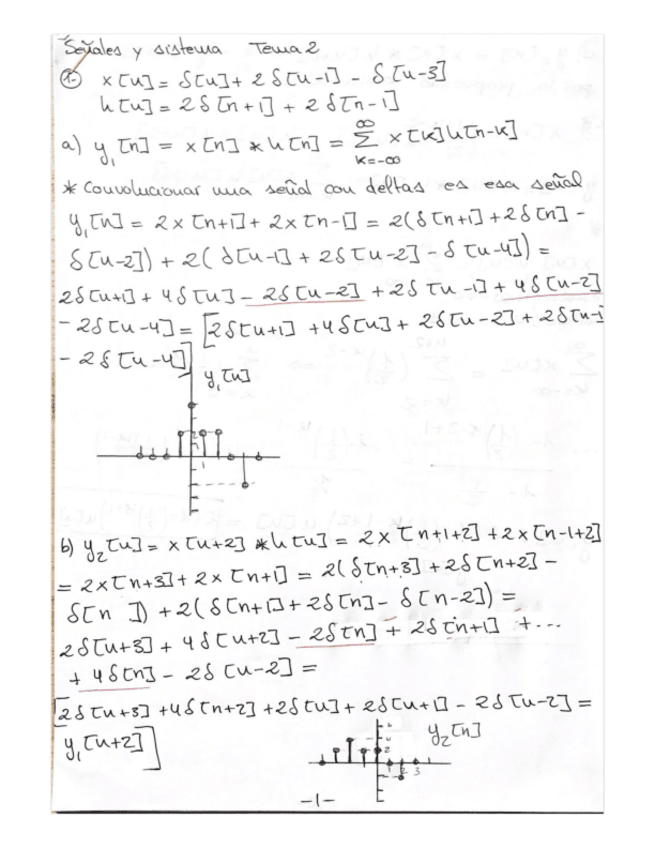 Señales y sistema Tema 2
1- x[n] = δ[n] + 2δ[n-1] - δ[n-3]
h[n] = 2δ[n+1] + 2δ[n-1]
a) y₁[n] = x[n] * h[n] = ∞ Σ k=-∞ x[k]h[n-k]
* Convolucionar una señal con deltas es esa señal
y₁[n] = 2x[n+1] + 2x[n-1] = 2(δ[n+1] + 2δ[n] -
δ[n-2]) + 2(δ[n-1] + 2δ[n-2] - δ[n-4]) =
2δ[n+1] + 4δ[n] - 2δ[n-2] + 2δ[n-1] + 4δ[n-2]
- 2δ[n-4] = [2δ[n+1] + 4δ[n] + 2δ[n-2] + 2δ[n-1
- 2δ[n-4]]
y₁[n]
1
b) y₂[n] = x[n+2] * h[n] = 2x[n+1+2] + 2x[n-1+2]
= 2x[n+3] + 2x[n+1] = 2(δ[n+3] + 2δ[n+2] -
δ[n ]) + 2(δ[n+1] + 2δ[n] - δ[n-2]) =
2δ[n+3] + 4δ[n+2] - 2δ[n] + 2δ[n+1] + ...
+ 4δ[n] - 2δ[n-2] =
[2δ[n+3] + 4δ[n+2] + 2δ[n] + 2δ[n+1] - 2δ[n-2] =
y₁[n+2]]
y₂[n]
1 2 3
-1-